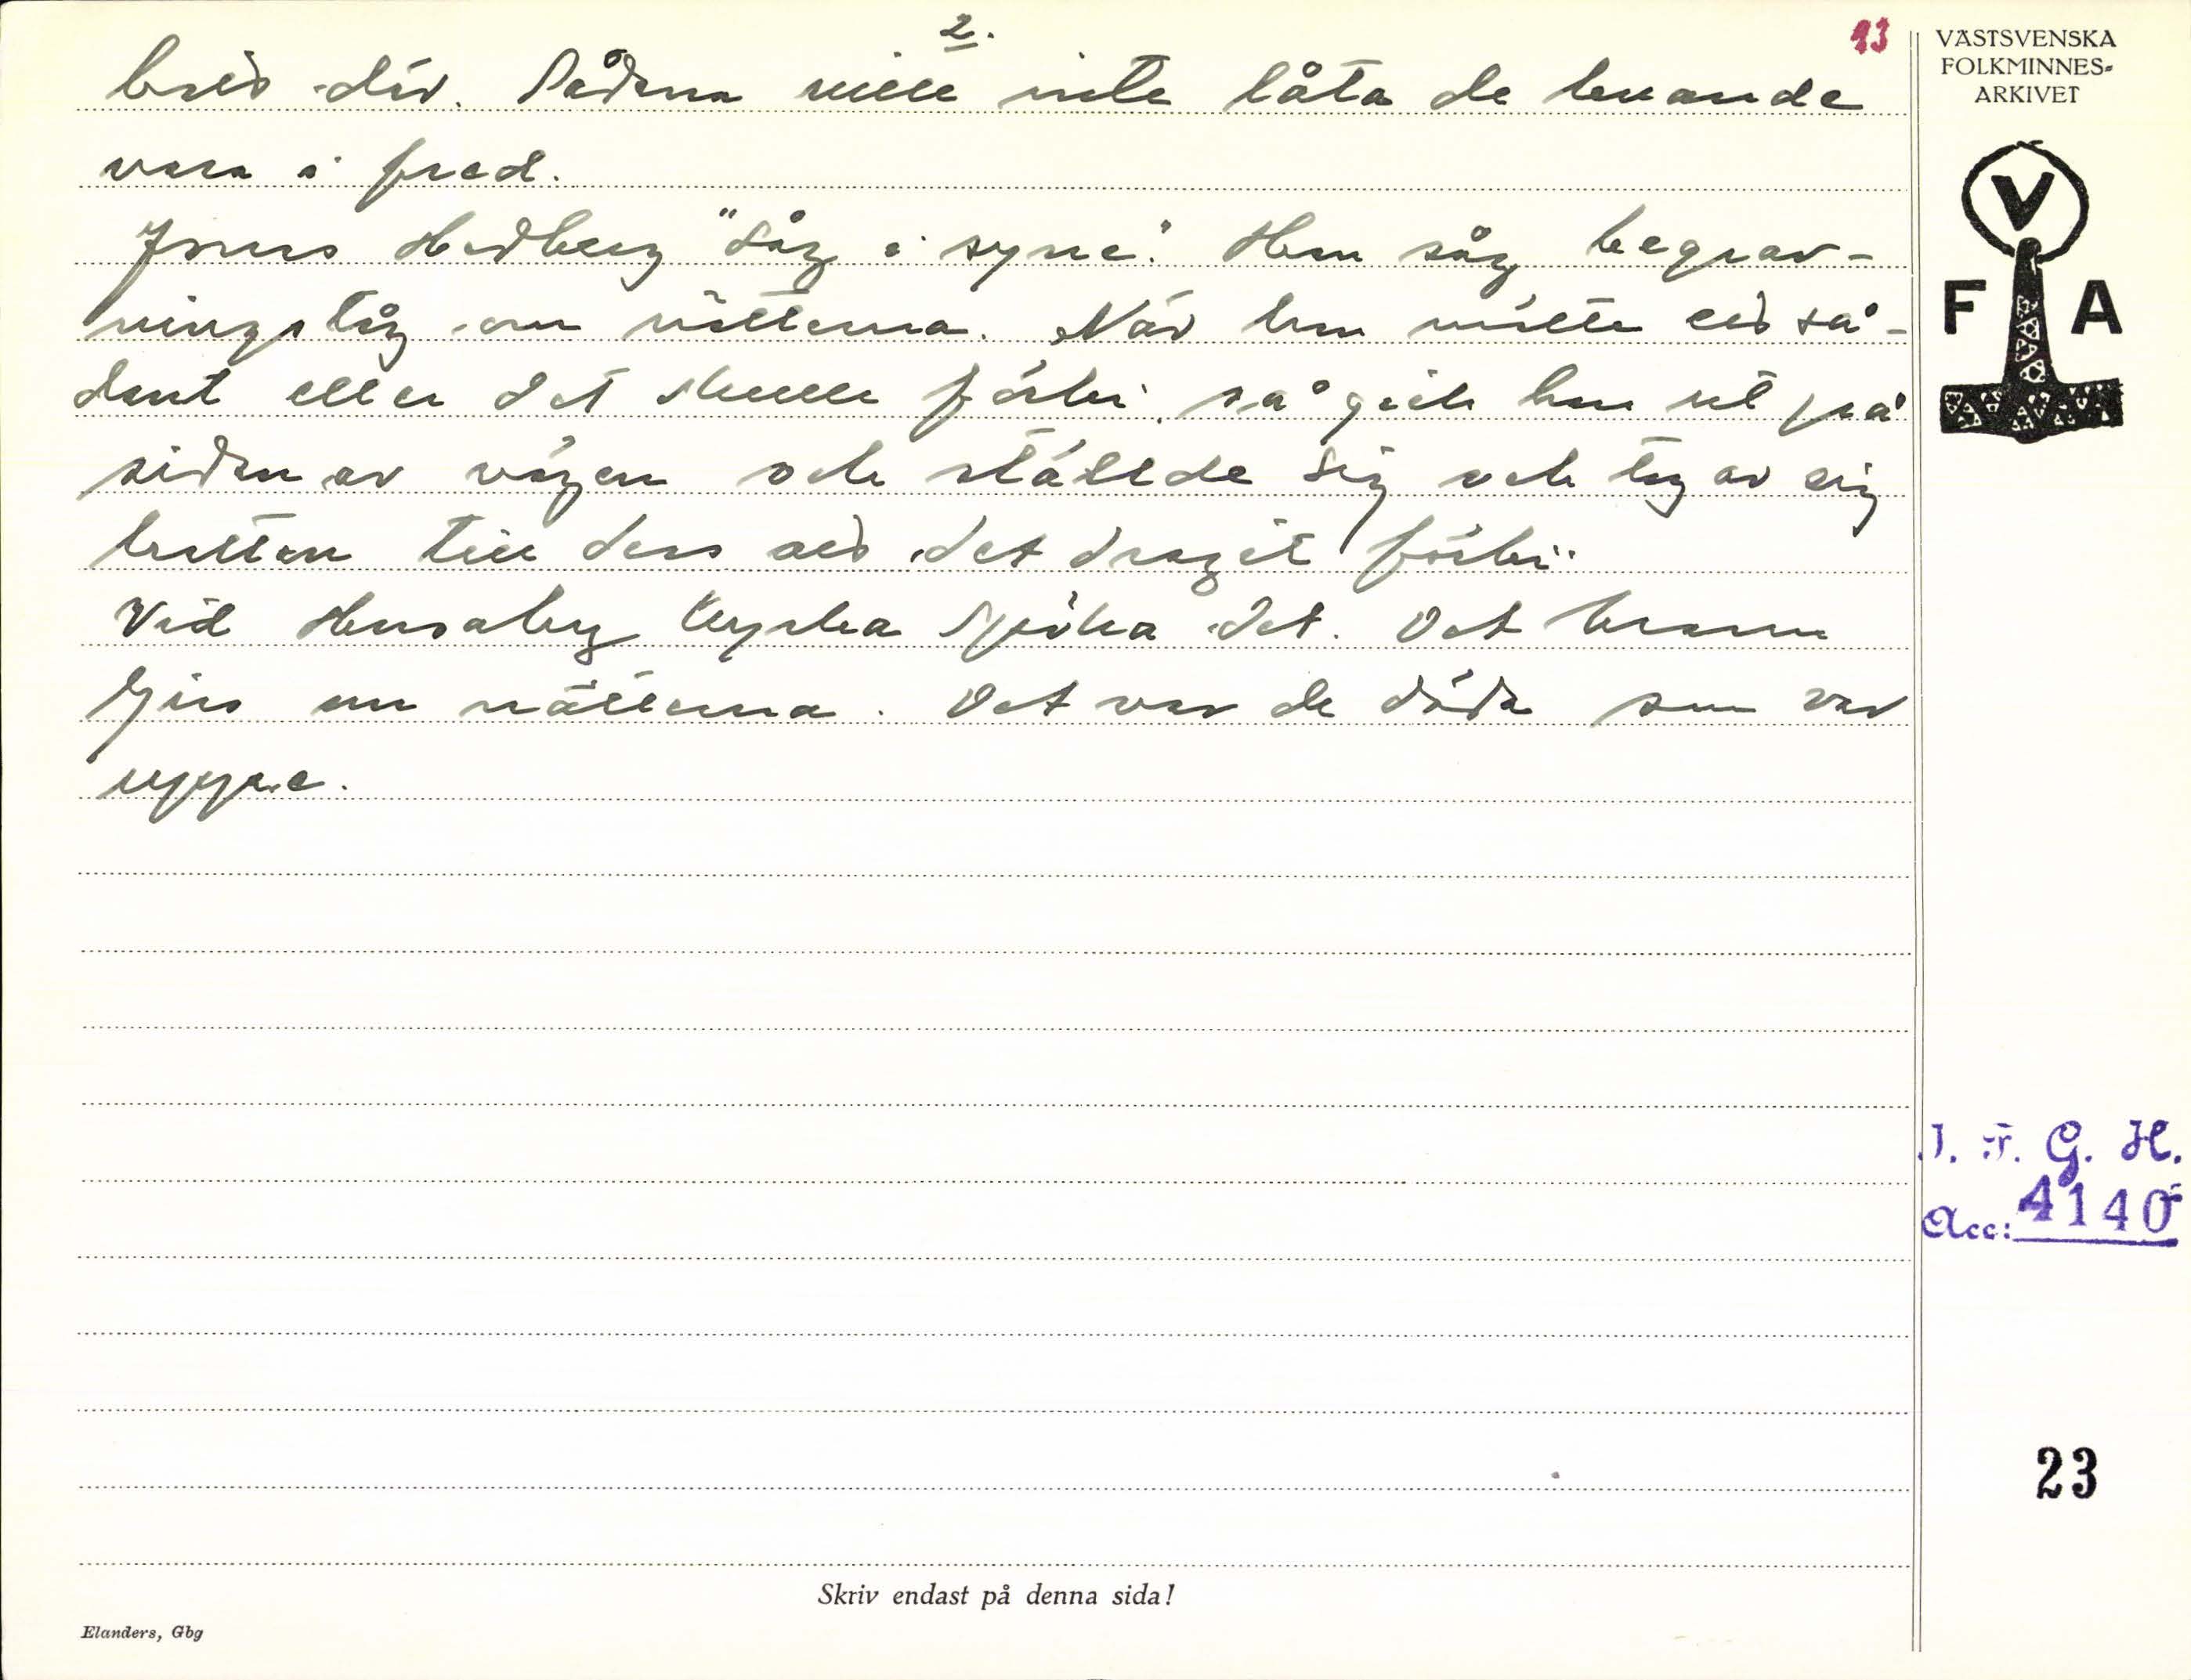 2.
13
där. Sådana ville inte låta de levande
vara i fred.
Jonas Hedberg "såg i syne". Han såg begrav-
ningståg om nätterna. När han mötte ett så-
dant eller det skulle förbi, så gick han ut på
sidan av vägen och ställde sig och tog av sig
hatten till dess att det dragit förbi.
Vid Husaby kyrka spöka det. Det brann
ljus om nätterna. Det var de döda som var
uppe.
VÄSTSVENSKA
FOLKMINNES-
ARKIVET
V
F A
I. F. G. H.
Acc: 4140
23
Skriv endast på denna sida!
Elanders, Gbg